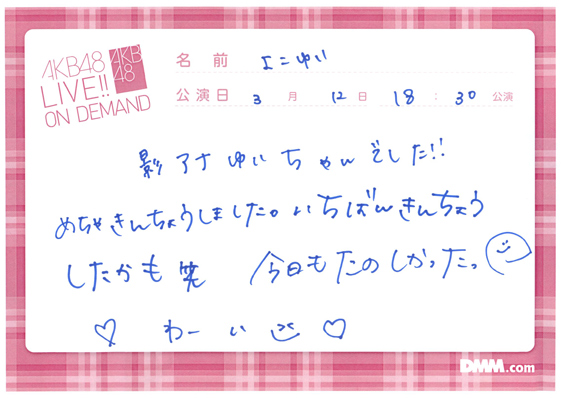 AKB48
LIVE!!
ON DEMAND
AKB
48
名前 よこゆい
公演日 3月12日 18:30公演
影アナゆいちゃんでした!!
めちゃきんちょうしました。いちばんきんちょう
したかも笑 今日もたのしかったっ
♡ わーい ♡
DMM.com